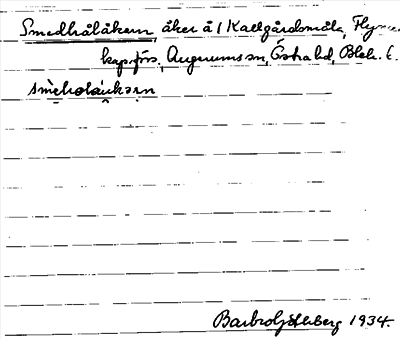 Smedhålåkern, åker å 1 Kallgårdsmåla, Flym-
kap.förs., Augerums sn, Östra hd, Blek. l.
Barbro Göthberg 1934.